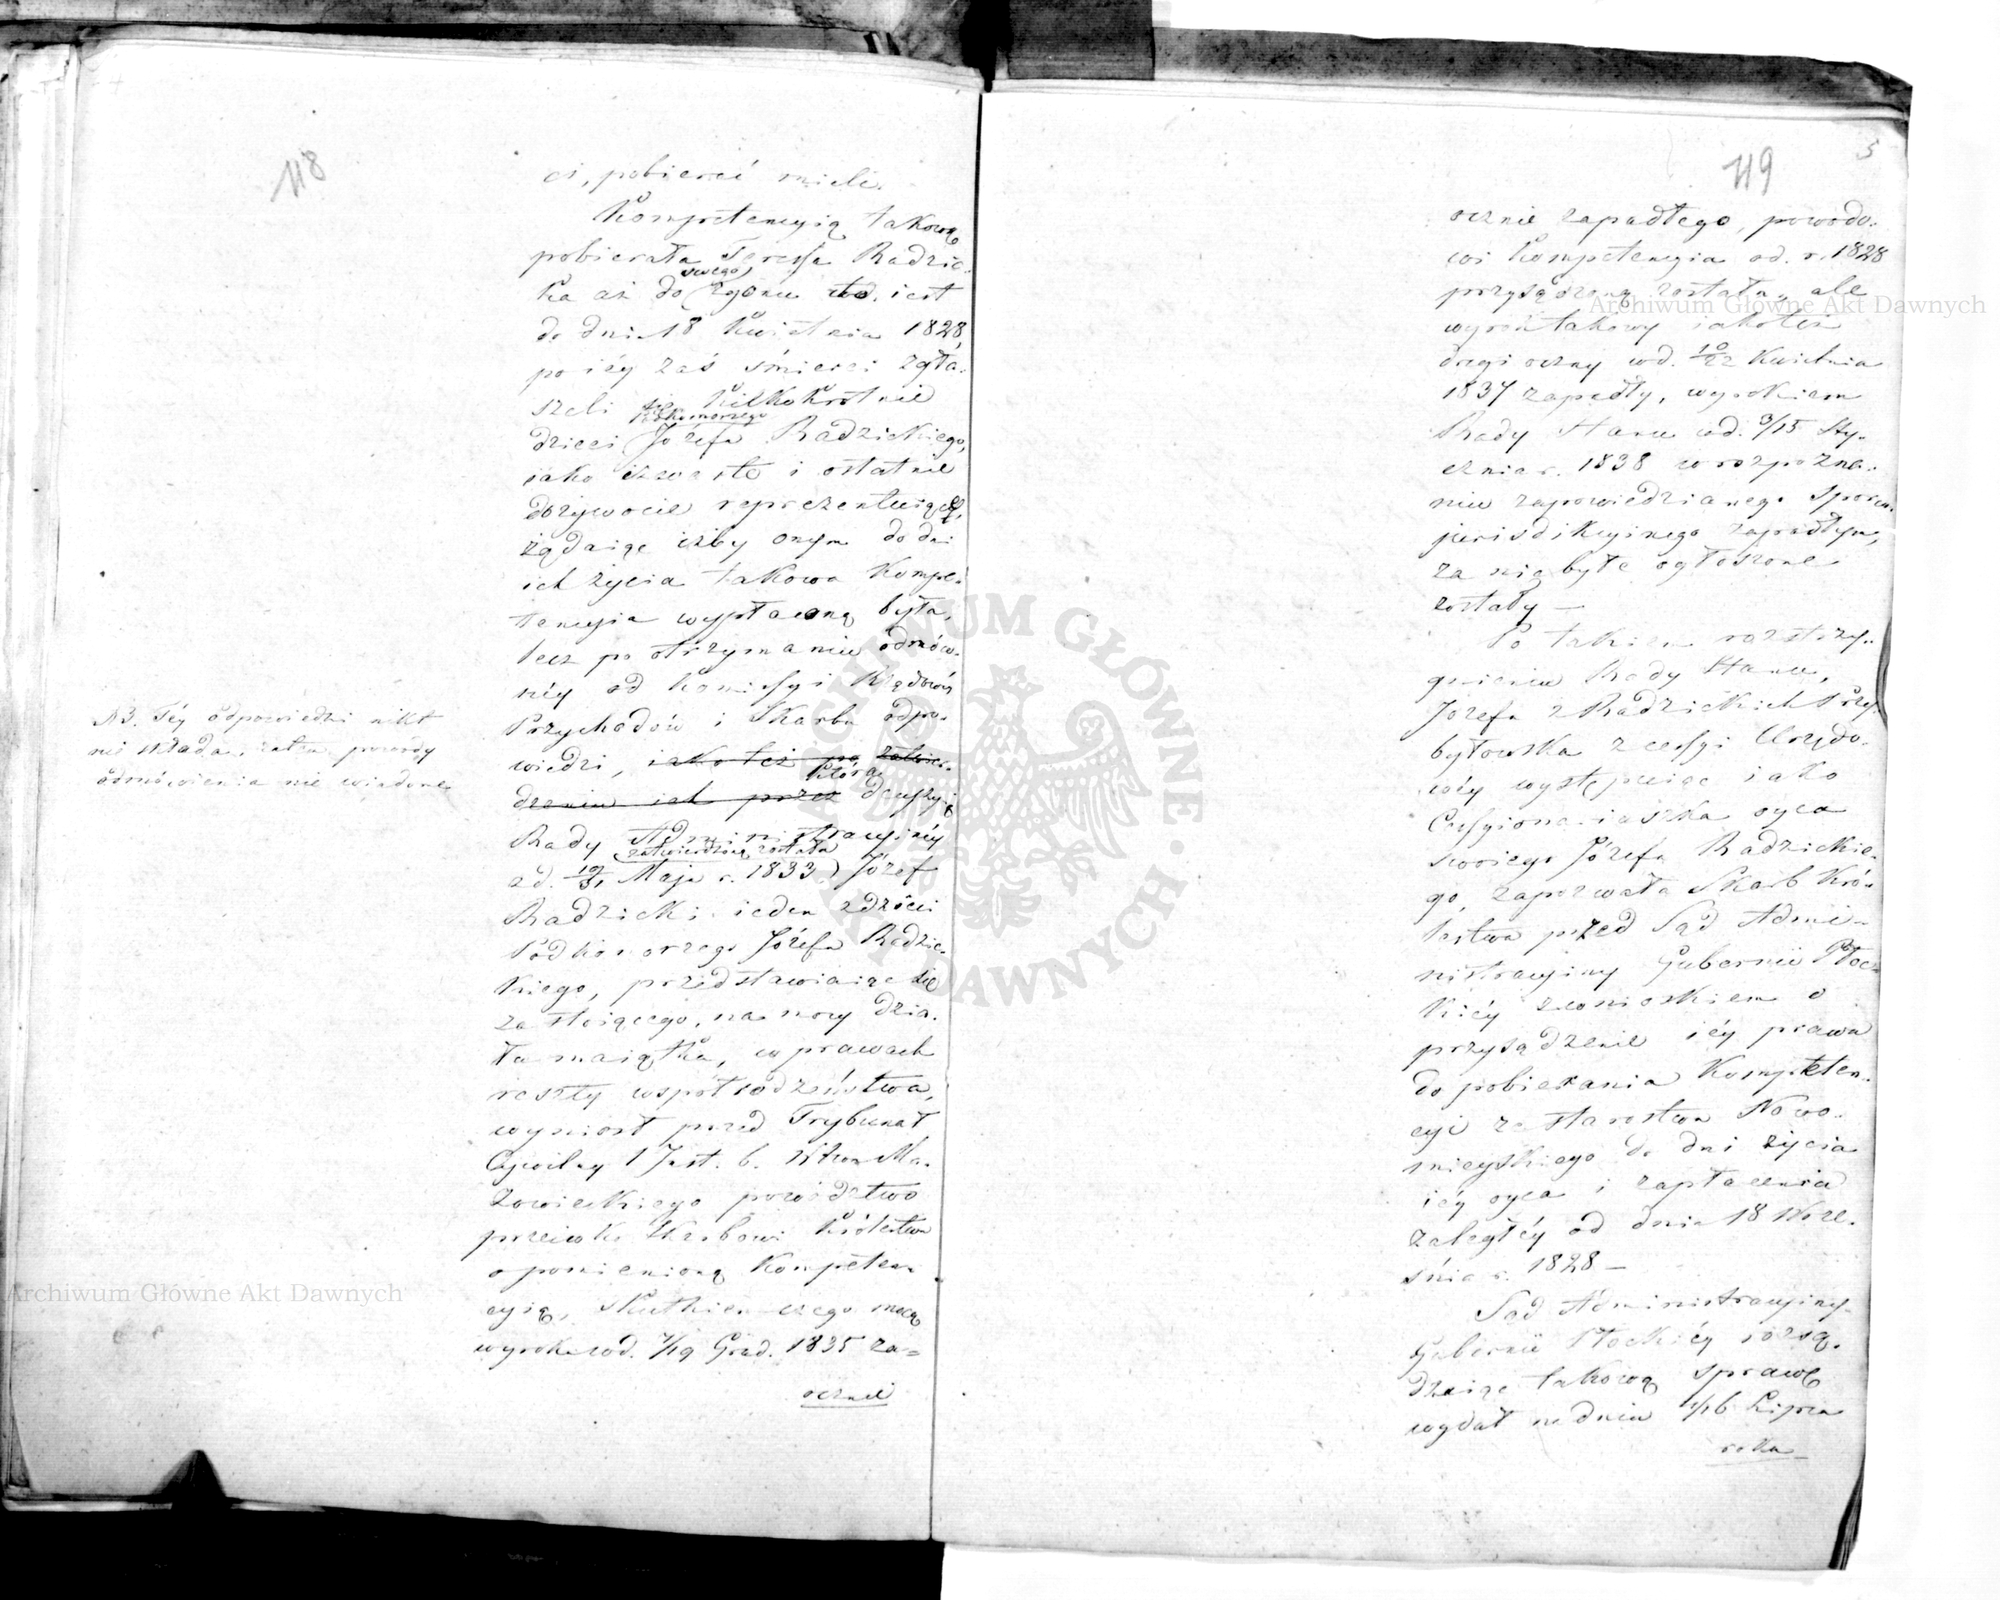 118
ci, pobierać mieli.
Kompetencyią takową
pobierała Teressa Radzic-
ka aż do swego zgonu to iest
do dnia 18 Kwietnia 1828
po iéy zaś śmierci zgła-
szali się kilkokrotnie
dzieci Podkomorzego Józefa Radzickiego,
iako czwarte i ostatnie
dożywocie reprezentuiące,
żądaiąc iżby onym do dni
ich życia takowa Kompe-
tencyia wypłaconą była,
lecz po otrzymaniu odmów-
néy od Kommissyi Rządowéy
Przychodów i Skarbu odpo-
wiedzi, iako też po zatwier-
dzeniu ich przez która decyzyią
Rady Administracyinéy
od. 19/31 Maja r. 1833 zatwierdzoną została) Józef
Radzicki ieden z dzieci
Podkomorzego Józefa Radzic-
kiego, przedstawiaiąc się
za stoiącego, na mocy dzia-
łu maiątku, w prawach
reszty współrodzeństwa,
wyniosł przed Trybunał
Cywilny 1 Inst. b. Wtwa Ma-
zowieckiego powództwo
przeciwko Skarbowi Królestwa
o pomienioną Kompeten-
cyią, skutkiem czego mocą
wyroku od. 7/19 Grud. 1835 za=
ocznie
NB. Téy odpowiedzi nikt
nie składa, zatem powody
odmówienia nie wiadome
119
5
ocznie zapadłego, powodo-
wi Kompetencyia od. r. 1828
przysądzoną została, ale
wyrok takowy iakoteż
drugi oczny od. 10/22 Kwietnia
1837 zapadły, wyrokiem
Rady Stanu od. 3/15 Sty-
cznia r. 1838 w rozpozna-
niu zapowiedzianego sporu
jurisdikcyinego zapadłym,
za niebyłe ogłoszone
zostały —
Po takiem rozstrzy-
gnieniu Rady Stanu,
Józefa z Radzickich Przy-
byłowska z cessyi Urzędo-
wéy występuiąc iako
Cessyionariuszka oyca
swoiego Józefa Radzickie-
go, zapozwała Skarb Kró-
lestwa przed Sąd Admi-
nistracyiny Gubernii Płoc-
kiéy z wnioskiem o
przysądzenie iéy prawa
do pobierania Kompeten-
cyi ze starostwa Nowo-
mieyskiego do dni życia
iéy oyca i zapłacenia
zaległéy od dnia 18 Wrze-
śnia r. 1828 —
Sąd Administracyiny
Gubernii Płockiéy rozsą-
dzaiąc takową sprawę
wydał na dniu 4/16 Lipca
roku
Archiwum Główne Akt Dawnych
Archiwum Główne Akt Dawnych
ARCHIWUM GŁÓWNE AKT DAWNYCH